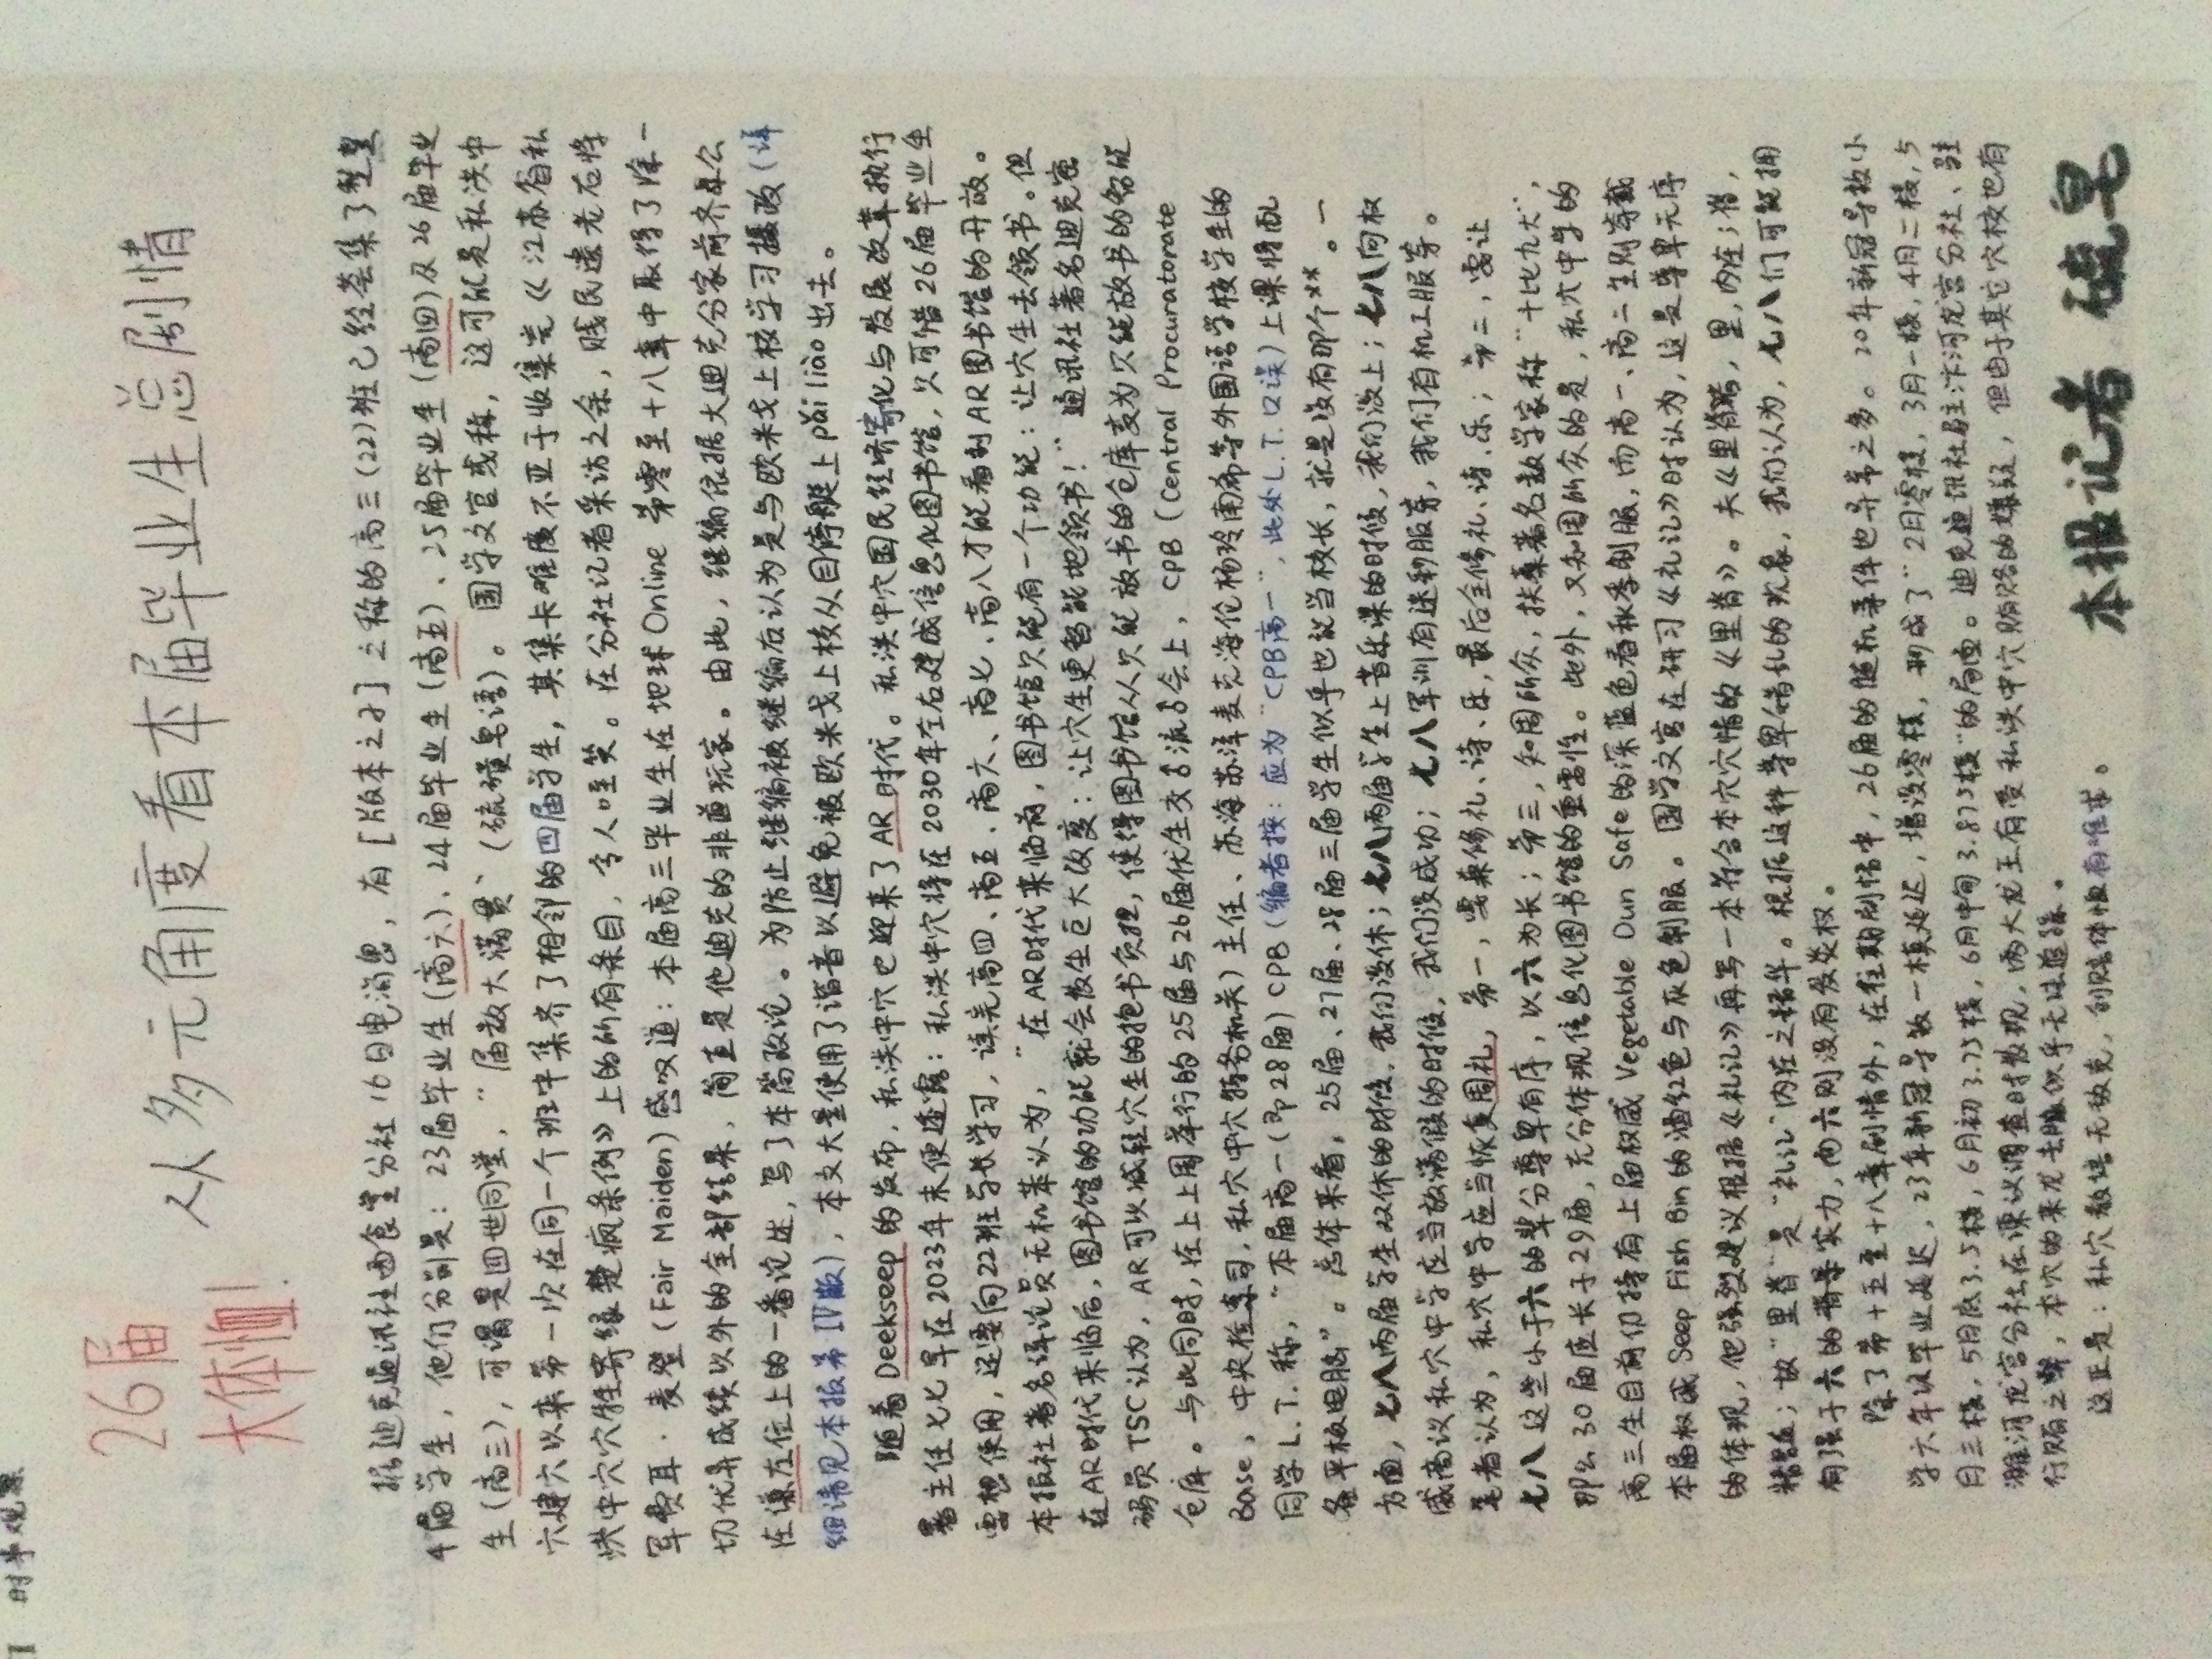 时事观察
26届
大体恤!
从多元角度看本届毕业生总剧情
据迪克通讯社西食堂分社16日电消息，有[版本之子]之称的高三(22)班已经荟集了整整
4届学生，他们分别是：23届毕业生(高六)、24届毕业生(高五)、25届毕业生(高四)及26届毕业
生(高三)，可谓是四世同堂，“届数大满贯”(硫磺皂语)。国学文官或称，这可能是私洪中
穴建穴以来第一次在同一个班中集齐了相邻的四届学生，其集卡难度不亚于收集完《江苏省私
洪中穴穴牲寄缘楚疯条例》上的所有条目，令人哇笑。在分社记者采访之余，贱民遗老右将
军费耳·麦登(Fair Maiden)感叹道：本届高三毕业生在地球Online第零至十八章中取得了除一
切优异成绩以外的全部结果，简直是他迪克的非酋玩家。由此，继编依据大迪克分家前齐桌公
在濂左位上的一番论述，写了本篇政论。为防止继编被继编右认为是与欧米戈上校学习摄政(详
细请见本报第IV版)，本文大量使用了谐音以避免被欧米戈上校从自停艇上pāi liào出去。
随着Deekseep的发布，私洪中穴也迎来了AR时代。私洪中穴国民经济寄化与发展改革执行
署主任七七早在2023年末便透露：私洪中穴将在2030年左右建成信息化图书馆，只可惜26届毕业生
要想使用，还要向22班学长学习，读完高四、高五、高六、高七、高八才能看到AR图书馆的开放。
本报社著名评论员无机苯认为，“在AR时代来临前，图书馆只能有一个功能：让穴生去领书。但
在AR时代来临后，图书馆的功能就会发生巨大改变：让穴生更智能地领书！”通讯社著名迪克密
码员TSC认为，AR可以减轻穴生的抱书负担，使得图书馆从只能放书的仓库变为只能放书的智能
仓库。与此同时，在上上周举行的25届与26届优生交♂流♂会上，CPB(Central Procuratorate
Base，中央检察司，私穴中穴特务机关)主任、苏海苏泽麦克海伦杨玲南希等外国语学校学生的
同学L.T.称，“本届高一(即28届)CPB(编者按：应为“CPB高一”，此处L.T.口误)上课将配
备平板电脑”。总体来看，25届、27届、28届三届学生似乎也能当校长，就是没有那个**。一
方面，七八两届学生双休的时候，我们没休；七八两届学生上音乐课的时候，我们没上；七八向权
威商议私穴中学应当放满假的时候，我们没成功；七八军训有迷彩服穿，我们有机工服穿。
笔者认为，私穴中学应当恢复周礼，第一，要兼修礼、诗、乐，最后全修礼、诗、乐；第二，要让
七八这些小于六的辈分尊卑有序，以六为长；第三，知周所众，扶桑著名数学家称“十比九大”，
那么30届应长于29届，充分体现信息化图书馆的重要性。此外，又知周所众的是，私穴中学的
高三生目前仍持有上届权威Vegetable Dun Safe的深蓝色春秋季制服，而高一、高二生则穿戴
本届权威Seep Fish Bin的酒红色与灰色制服。国学文官在研习《礼记》时认为，这是尊卑无序
的体现，他强烈建议根据《礼记》再写一本符合本穴穴情的《里脊》。夫《里脊》者，里，内在；脊，
精髓；故“里脊”是“礼记”内在之精华。根据这种尊卑错乱的现象，我们认为，七八们可能拥
有强于六的背景实力，而六则没有发炎权。
除了第十五至十八章剧情外，在往期剧情中，26届的随机事件也异常之多。20年新冠导致小
学六年级毕业延迟，23年新冠导致一模延迟，增设零模，形成了“2月零模，3月一模，4月二模，5
月三模，5月底3.5模，6月初3.75模，6月中旬3.875模”的局面。迪克通讯社驻汴河龙宫分社、驻
濉河龙宫分社在谏议调查时发现，两大龙王有受私洪中穴贿赂的嫌疑，但由于其它穴校也有
行贿之弊，本穴的来龙去脉似乎无法追踪。
这正是：私穴教培无敌克，创赔体恤有难求。
本报记者 硫皂